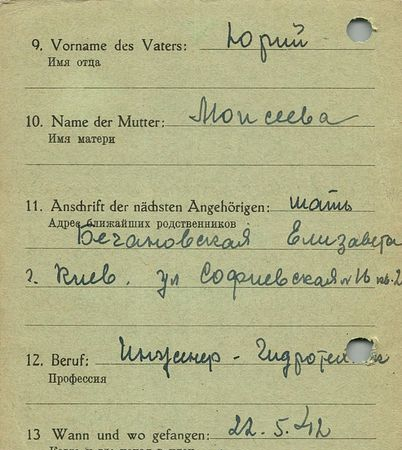 9. Vorname des Vaters: Юрий
Имя отца
10. Name der Mutter: Моисеева
Имя матери
11. Anschrift der nächsten Angehörigen: мать
Адрес ближайших родственников
Бегановская Елизавета
г. Киев. ул Софиевская № 16 кв. 2
12. Beruf: Инженер -
Профессия
13 Wann und wo gefangen: 22. 5. 42